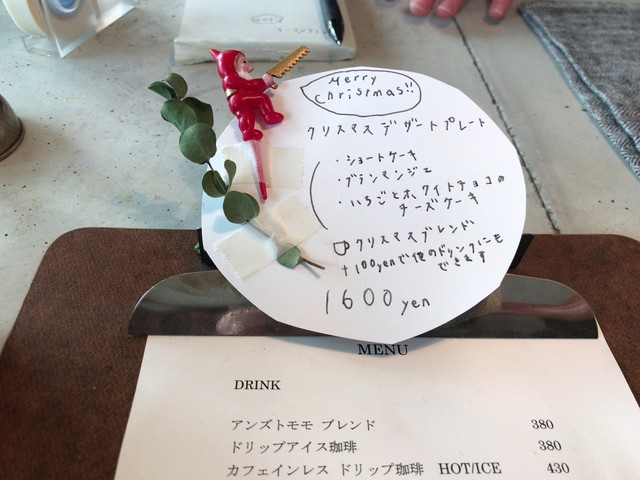 Merry
Christmas!!
クリスマスデザートプレート
・ショートケーキ
・ブランマンジェ
・いちごとホワイトチョコの
チーズケーキ
クリスマスブレンド
+100yenで他のドリンクにも
できます
1600yen
MENU
DRINK
アンズトモモ ブレンド 380
ドリップアイス珈琲 380
カフェインレス ドリップ珈琲 HOT/ICE 430